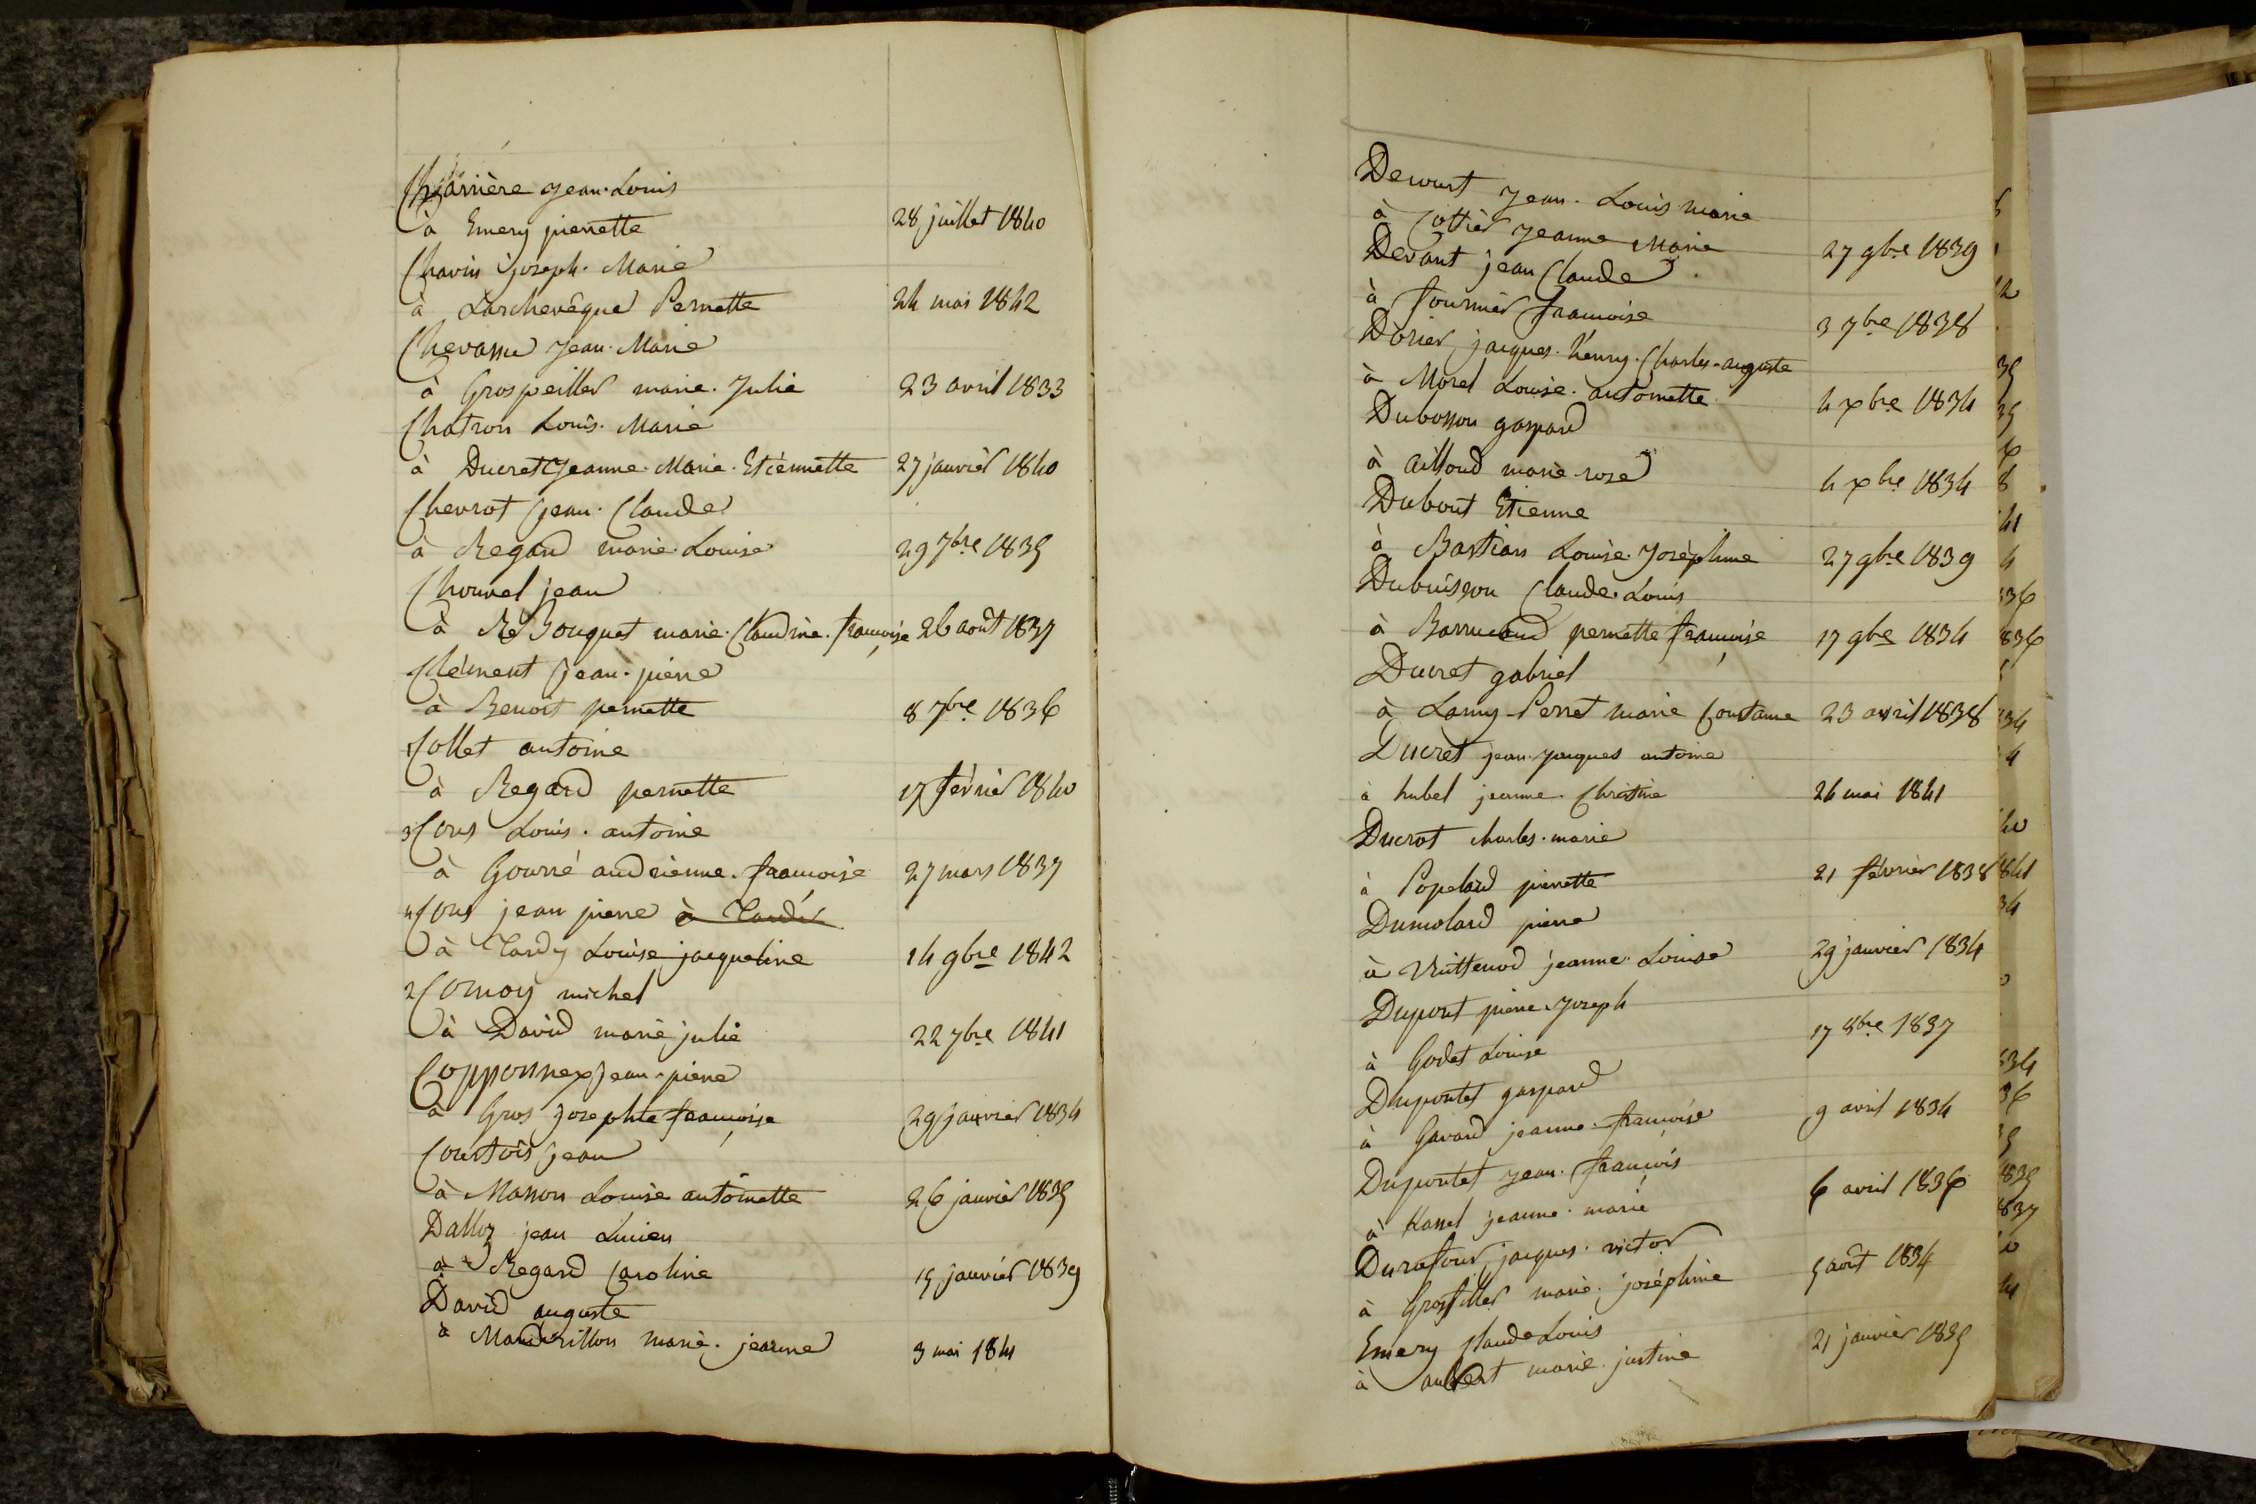 Charrière Jean-Louis
à Emery pierrette 28 juillet 1840
Chavin joseph-Marie
à Larchevêque Pernette 24 mai 1842
Chevassu Jean-Marie
à Grospeiller marie-Julie 23 avril 1833
Chatron Louis-Marie
à Ducret Jeanne-Marie-Etiennette 27 janvier 1840
Chevrot Jean-Claude
à Regard marie-Louise 29 7bre 1835
Chouvel jean
à Bouquet marie-Claudine-françoise 26 août 1837
Clément Jean-pierre
à Benoit pernette 8 7bre 1836
Collet antoine
à Regard pernette 17 février 1840
3 Cous Louis-antoine
à Gourré andrienne-françoise 27 mars 1837
4 Cous jean pierre à Tardy
à Tardy Louise jacqueline 14 9bre 1842
2 Comoy michel
à David marie julie 22 7bre 1841
Copponnex Jean-pierre
à Gros josephte françoise 29 janvier 1834
Courtois Jean
à Masson Louise antoinette 26 janvier 1835
Dalloz jean Lucien
à Regard Caroline 15 janvier 1839
David auguste
à Mandrillon marie-jeanne 3 mai 1841
Decourt Jean-Louis marie
à Cottier Jeanne Marie 27 9bre 1839
Devant jean Claude
à fournier françoise 3 7bre 1838
Dorier jacques-henry-Charles-auguste
à Morel Louise-antoinette 4 xbre 1834
Dubosson gaspard
à ailloud marie-rose 4 xbre 1834
Dubout Etienne
à Bastian Louise-Joséphine 27 9bre 1839
Dubuisson Claude-Louis
à Barrucand pernette françoise 17 9bre 1834
Ducret gabriel
à Lamy-Perret marie Constance 23 avril 1838
Ducret jean-jacques antoine
à hubel jeanne-Christine 24 mai 1841
Ducrot charles-marie
à Popelard pierrette 21 février 1838
Dumolard pierre
à Vuittenod jeanne-Louise 29 janvier 1834
Dupont pierre-Joseph
à Godet Louise 17 8bre 1837
Dupontet gaspard
à Gavard jeanne-françoise 9 avril 1834
Dupontet Jean-françois
à Kassel jeanne-marie 6 avril 1836
Durafour jacques-victor
à Grosfiller marie-joséphine 5 août 1834
Emery Claude Louis
à aubert marie-justine 21 janvier 1835